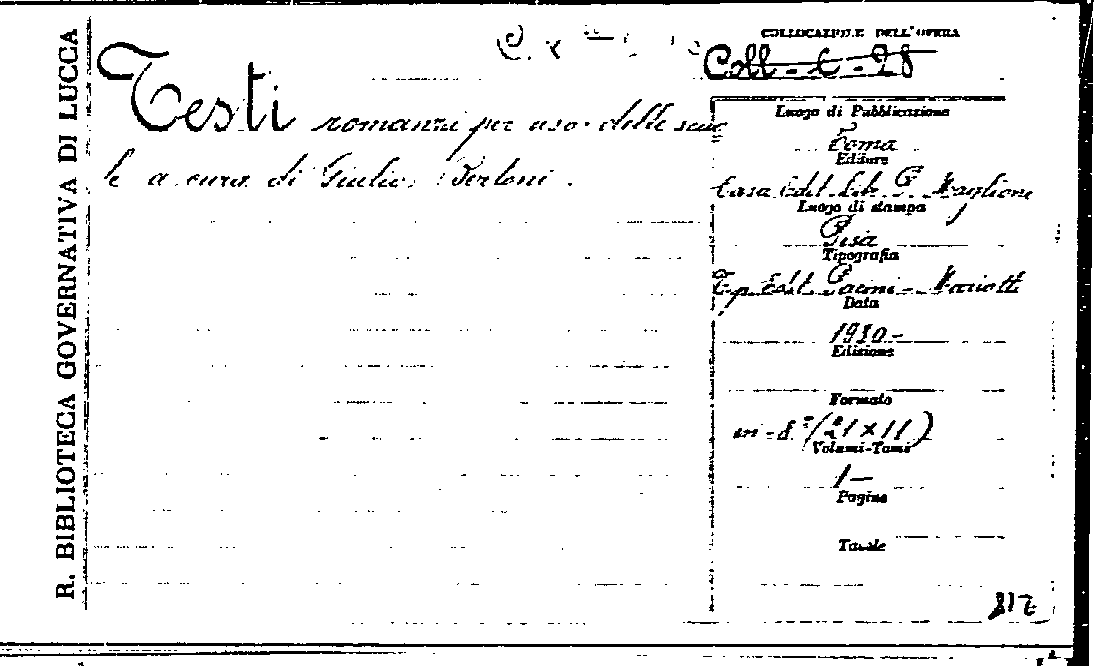 R. BIBLIOTECA GOVERNATIVA DI LUCCA
COLLOCAZIONE DELL'OPERA
Coll - C - 28
Testi romanzi per uso delle scuo=
le a cura di Giulio Bertoni.
Luogo di Pubblicazione
Roma
Editore
Casa Edit. Lib. P. Maglione
Luogo di stampa
Pisa
Tipografia
Tip. Edit. Pacini - Mariotti
Data
1930 -
Edizione
Formato
in - 8° (21 x 11)
Volumi-Tomi
1 -
Pagine
Tavole